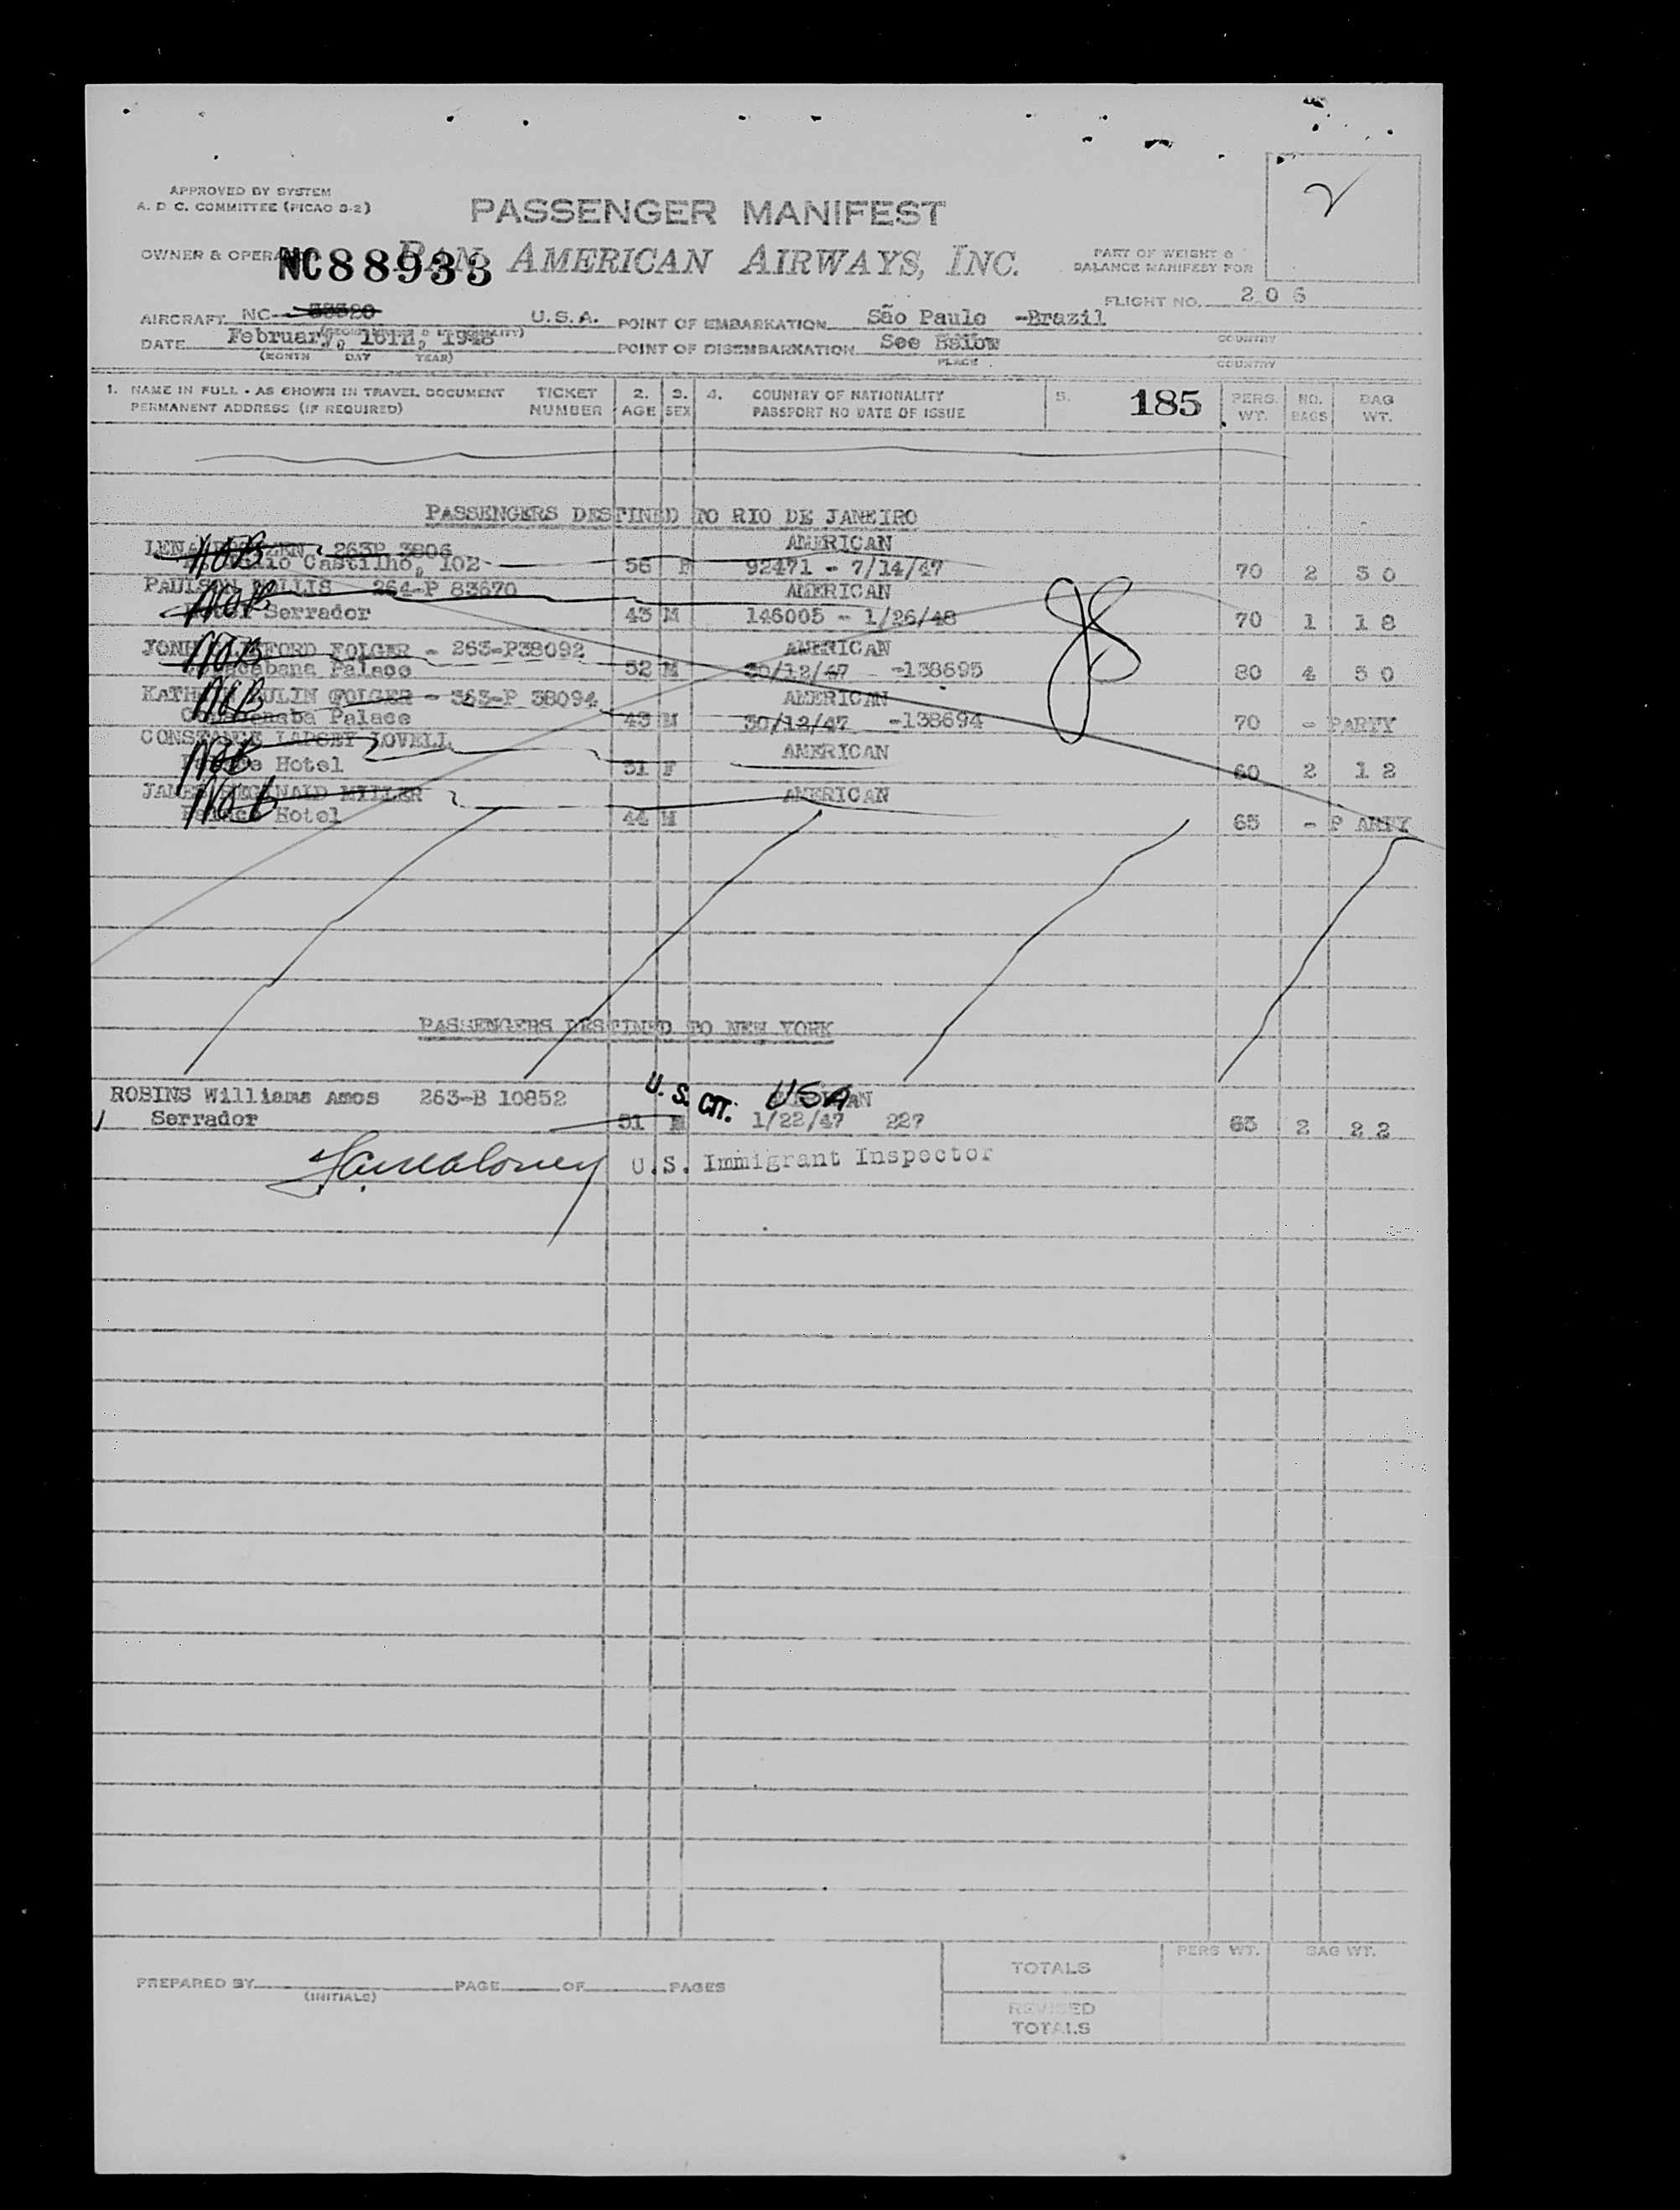 2
APPROVED BY SYSTEM
A. D C. COMMITTEE (PICAO S-2)
PASSENGER MANIFEST
OWNER & OPERA NC88933 PAN AMERICAN AIRWAYS, INC.
PART OF WEIGHT &
BALANCE MANIFEST FOR
FLIGHT NO. 206
AIRCRAFT NC- U.S.A. POINT OF EMBARKATION São Paulo -Brazil
COUNTRY
DATE February, 16th, 1948 POINT OF DISEMBARKATION See Below
(MONTH DAY YEAR) PLACE COUNTRY
1. NAME IN FULL - AS SHOWN IN TRAVEL DOCUMENT TICKET 2. 3. 4. COUNTRY OF NATIONALITY 5. 185 PERS. NO. BAG
PERMANENT ADDRESS (IF REQUIRED) NUMBER AGE SEX PASSPORT NO DATE OF ISSUE WT. BAGS WT.
PASSENGERS DESTINED TO RIO DE JANEIRO
LENA 263P 3806 AMERICAN
NOB Castilho, 102- 56 F 92471 - 7/14/47 70 2 50
264-P 83670 AMERICAN
NOB Serrador 43 M 146005 - 1/26/48 70 1 18
FORD FOLGER - 263-P38092 AMERICAN
NOB Palace 52 M 30/12/47 -138695 80 4 50
KATH ULIN FOLGER - 363-P 38094 AMERICAN
NOB Palace 43 M 30/12/47 -138694 70 - PARTY
CONSTANCE LAPSEY LOVELL AMERICAN
NOB Hotel 51 F 60 2 12
JAMES REGINALD MILLER AMERICAN
NOB Hotel 44 M 65 - P ARTY
PASSENGERS DESTINED TO NEW YORK
ROBINS Williams Amos 263-B 10852 U. S. CIT. USA
Serrador 51 M 1/22/47 227 63 2 22
U.S. Immigrant Inspector
PREPARED BY PAGE OF PAGES
(INITIALS)
PERS WT. BAG WT.
TOTALS
REVISED
TOTALS